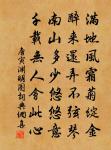 满地风霜菊绽金
醉来还弄不弦琴
南山多少悠悠意
千载无人会此心
唐寅渊明图词典网书